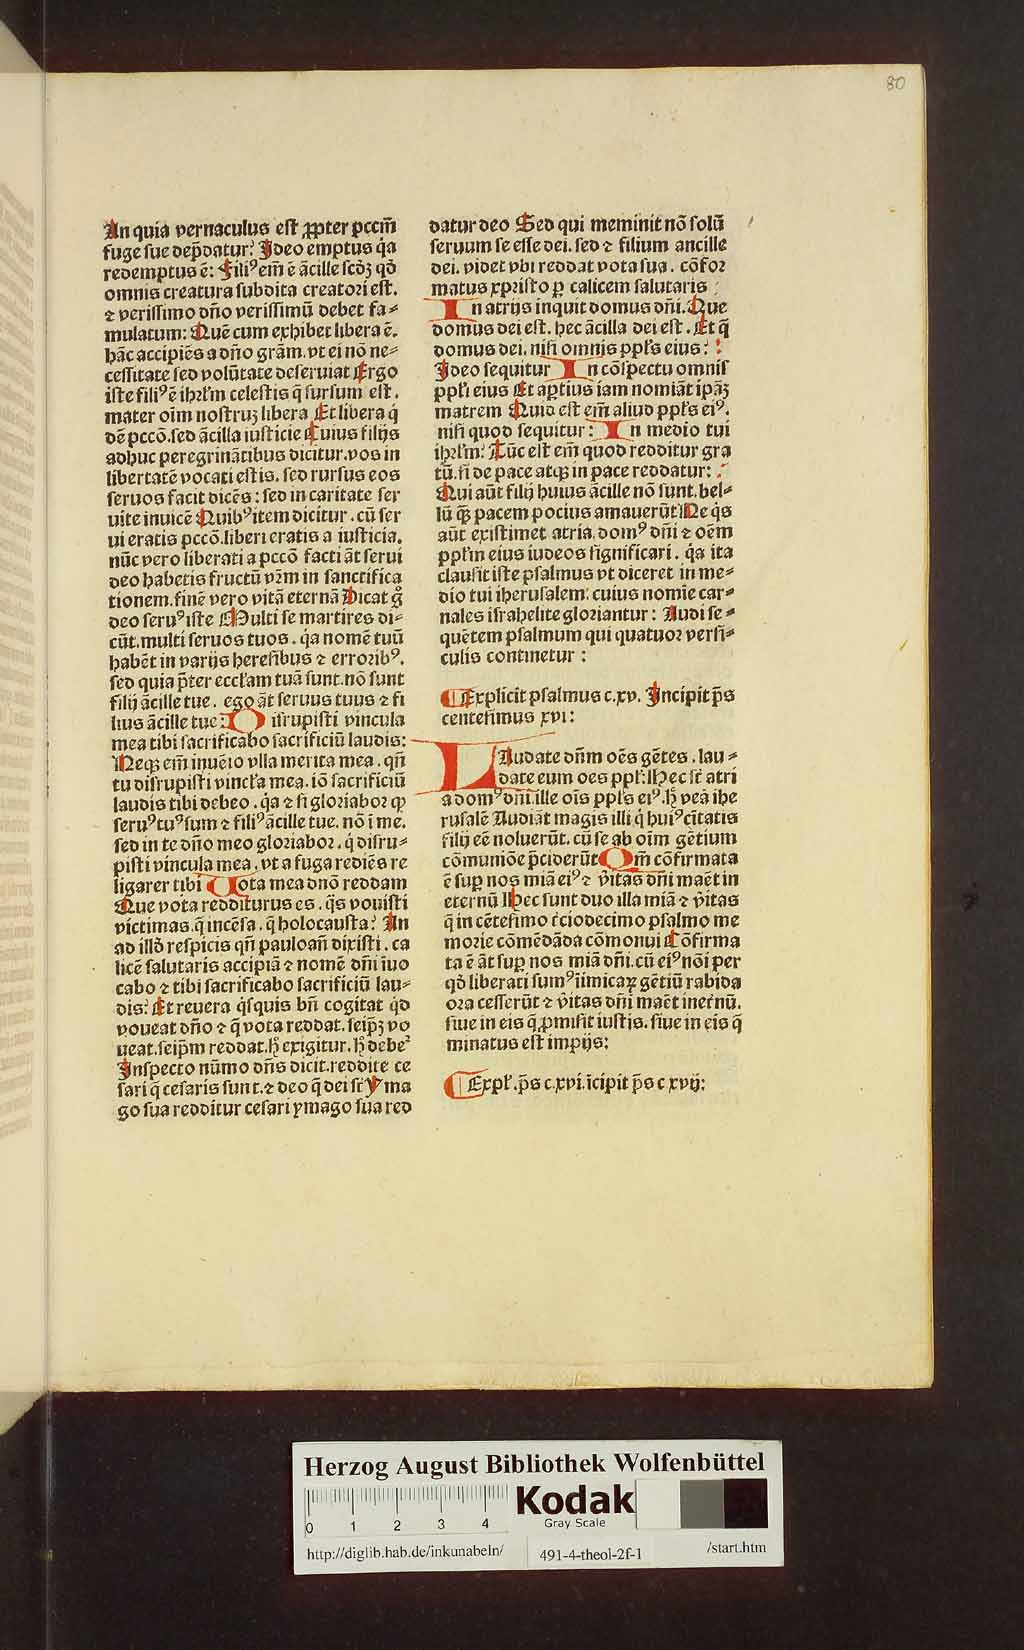 80
An quia vernaculus est ꝓpter pccm̄
fuge sue dep̄datur? Ideo emptus q̇a
redemptus ē: Fili⁹ em̄ ē ācille scd̄ꝫ qd̄
omnis creatura subdita creatori est.
⁊ verissimo dn̄o verissimū debet fa⸗
mulatum: Quē cum exhibet libera ē.
hāc accipiēs a dn̄o grām. vt ei nō ne⸗
cessitate sed volūtate deseruiat Ergo
iste fili⁹ ē ihrl̄m celestis q̄ sursum est.
mater oīm nostruꝫ libera Et libera q̇
dē pccō. sed ācilla iusticie Cuius filijs
adhuc peregrinātibus dicitur. vos in
libertatē vocati estis. sed rursus eos
seruos facit dicēs: sed in caritate ser
uite inuicē Quib⁹ item dicitur. cū ser
ui eratis pccō. liberi eratis a iusticia.
nūc vero liberati a pccō facti āt serui
deo habetis fructū vr̄m in sanctifica
tionem. finē vero vitā eternā Dicat g̊
deo seru⁹ iste Multi se martires di⸗
cūt. multi seruos tuos. q̇a nomē tuū
habēt in varijs heresibus ⁊ errorib⁹.
sed quia p̄ter eccl̄am tuā sunt. nō sunt
filij ācille tue. ego āt seruus tuus ⁊ fi
lius ācille tue: Disrupisti vincula
mea tibi sacrificabo sacrificiū laudis:
Neqꝫ em̄ inuēio vlla merita mea. qn̄
tu disrupisti vincl̄a mea. iō sacrificiū
laudis tibi debeo. q̇a ⁊ si gloriabor ꝙ
seru⁹ tu⁹ sum ⁊ fili⁹ ācille tue. nō ī me.
sed in te dn̄o meo gloriabor. q̇ disru⸗
pisti vincula mea. vt a fuga rediēs re
ligarer tibi Uota mea dn̄o reddam
Que vota redditurus es. q̄s vouisti
victimas. q̄ incēsa. q̄ holocausta? An
ad illd̄ respicis qn̄ pauloan̄ dixisti. ca
licē salutaris accipiā ⁊ nomē dn̄i īuo
cabo ⁊ tibi sacrificabo sacrificiū lau⸗
dis? Et reuera q̇squis bn̄ cogitat q̇d
voueat dn̄o ⁊ q̄ vota reddat. seip̄ꝫ vo
ueat. seip̄m reddat. h̄ exigitur. h̄ debeᷣ
Inspecto nūmo dn̄s dicit. reddite ce
sari q̄ cesaris sunt. ⁊ deo q̄ dei st̄ Yma
go sua redditur cesari ymago sua red
datur deo Sed qui meminit nō solū
seruum se esse dei. sed ⁊ filium ancille
dei. videt vbi reddat vota sua. cōfor
matus xpristo ꝑ calicem salutaris:
In atrijs inquit domus dn̄i. Que
domus dei est. hec ācilla dei est. Et q̄
domus dei. nisi omnis ppl̄s eius?
Ideo sequitur In cōspectu omnis
ppl̄i eius Et aptius iam nomiāt ip̄aꝫ
matrem Quid est em̄ aliud ppl̄s ei⁹.
nisi quod sequitur: In medio tui
ihrl̄m? Tūc est em̄ quod redditur gra
tū. si de pace atqꝫ in pace reddatur:
Qui aūt filij huius ācille nō sunt. bel⸗
lū q̄ꝫ pacem pocius amauerūt Ne q̇s
aūt existimet atria dom⁹ dn̄i ⁊ oēm
ppl̄m eius iudeos significari. q̇a ita
clausit iste psalmus vt diceret in me⸗
dio tui iherusalem. cuius nomīe car⸗
nales israhelite gloriantur: Audi se⸗
quētem psalmum qui quatuor versi⸗
culis continetur:
Explicit psalmus c.xv. Incipit p̄s
centesimus xvi:
LAudate dn̄m oēs gētes. lau⸗
date eum oēs ppl̄i. Hec st̄ atri
a dom⁹ dn̄i. ille oīs ppl̄s ei⁹. h̄ veā ihe
rusalē Audiāt magis illi q̇ hui⁹ cītatis
filij eē noluerūt. cū se ab oīm gētium
cōmuniōe p̄ciderūt Qm̄ cōfirmata
ē suꝑ nos mīa ei⁹ ⁊ v̄itas dn̄i maēt in
eternū Hec sunt duo illa mīa ⁊ v̄itas
q̄ in cētesimo t̄ciodecimo psalmo me
morie cōmēdāda cōmonui Cōfirma
ta ē āt suꝑ nos mīa dn̄i. cū ei⁹ nōi per
qd̄ liberati sum⁹ īimicaꝝ gētiū rabida
ora cesserūt ⁊ v̄itas dn̄i maēt inet̄nū.
siue in eis q̄ ꝓmisit iustis. siue in eis q̄
minatus est impijs:
Expl̄. p̄s c.xvi. īcipit p̄s c xvij:
Herzog August Bibliothek Wolfenbüttel
0 1 2 3 4
Kodak
Gray Scale
http://diglib.hab.de/inkunabeln/ 491-4-theol-2f-1 /start.htm